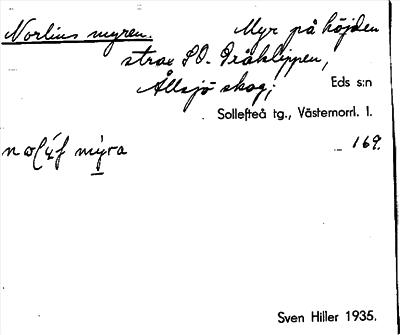 Norlins myren. Myr på höjden
strax SO. Gråklippen,
Ållsjö skog; Eds s:n
Sollefteå tg., Västernorrl. l.
mỳra 169.
Sven Hiller 1935.